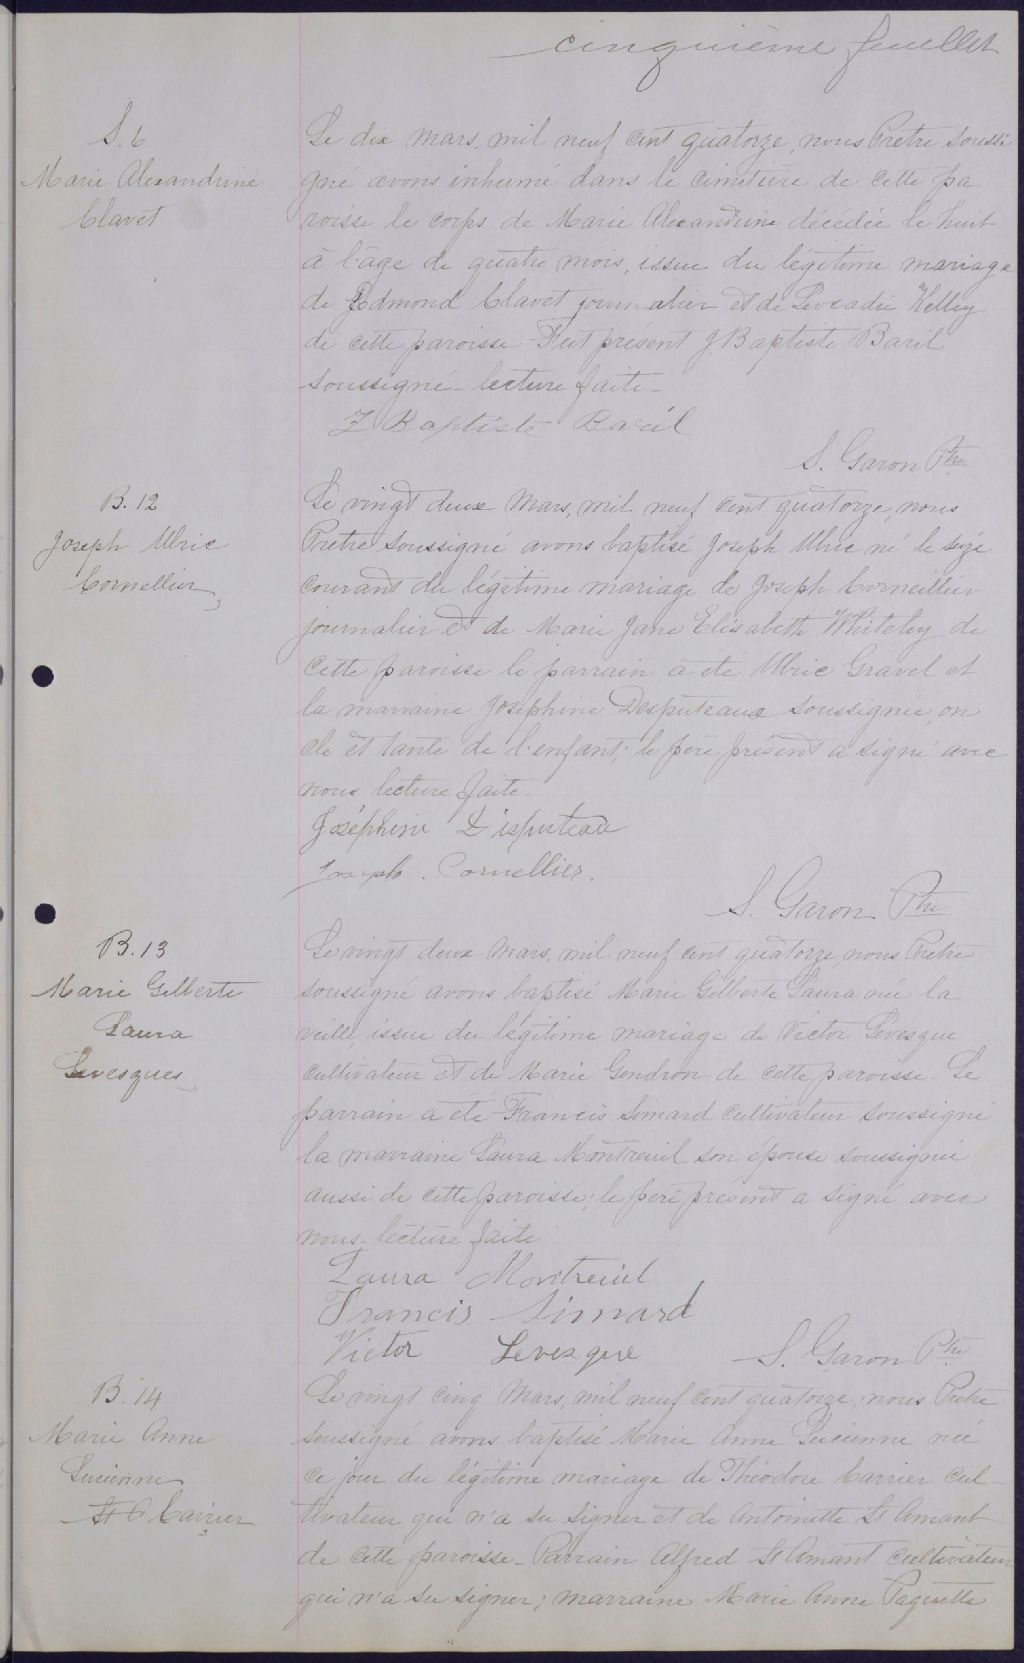 cinquième feuillet
S. 6
Marie Alexandrine
Clavet
Le dix mars, mil neuf cent quatorze, nous Prêtre soussi
gné avons inhumé dans le cimetière de cette pa
roisse le corps de Marie Alexandrine décédée le huit
à l'âge de quatre mois, issue du légitime mariage
de Edmond Clavet journalier et de Leocadie Kelley
de cette paroisse Fut présent J. Baptiste Baril
soussigné - lecture faite -
J Baptiste Baril
S. Garon Ptre
B. 12
Joseph Ulric
Cornellier
Le vingt deux Mars, mil neuf cent quatorze, nous
Pretre soussigné avons baptisé Joseph Ulric né le seize
courant du légitime mariage de Joseph Corneillier
journalier et de Marie Jane Elisabeth Whiteley de
cette paroisse le parrain a été Ulric Gravel et
la marraine Josephine Desputeaux soussignée, on
cle et tante de l'enfant; le père présent a signé avec
nous lecture faite -
Joséphine Disputeau
Joseph . Cornellier.
S. Garon Ptre
B. 13
Marie Gilberte
Laura
Levesques
Le vingt deux Mars, mil neuf cent quatorze, nous Pretre
soussigné avons baptisé Marie Gilberte Laura née la
veille, issue du légitime mariage de Victor Levesque
cultivateur et de Marie Gendron de cette paroisse - Le
parrain a été Francis Simard cultivateur soussigné
la marraine Laura Montreuil son épouse soussignée
aussi de cette paroisse; le père présent a signé avec
nous - lecture faite
Laura Montreuil
Francis Simard
Victor Levesque
S. Garon Ptre
B. 14
Marie Anne
Lucienne
St A Carrier
Le vingt cinq Mars, mil neuf cent quatorze, nous Pretre
soussigné avons baptisé Marie Anne Lucienne née
ce jour du légitime mariage de Théodore Carrier cul-
tivateur qui n'a su signer et de Antoinette St Amant
de cette paroisse - Parrain Alfred St Amant cultivateur
qui n'a su signer; marraine Marie Anne Paquette